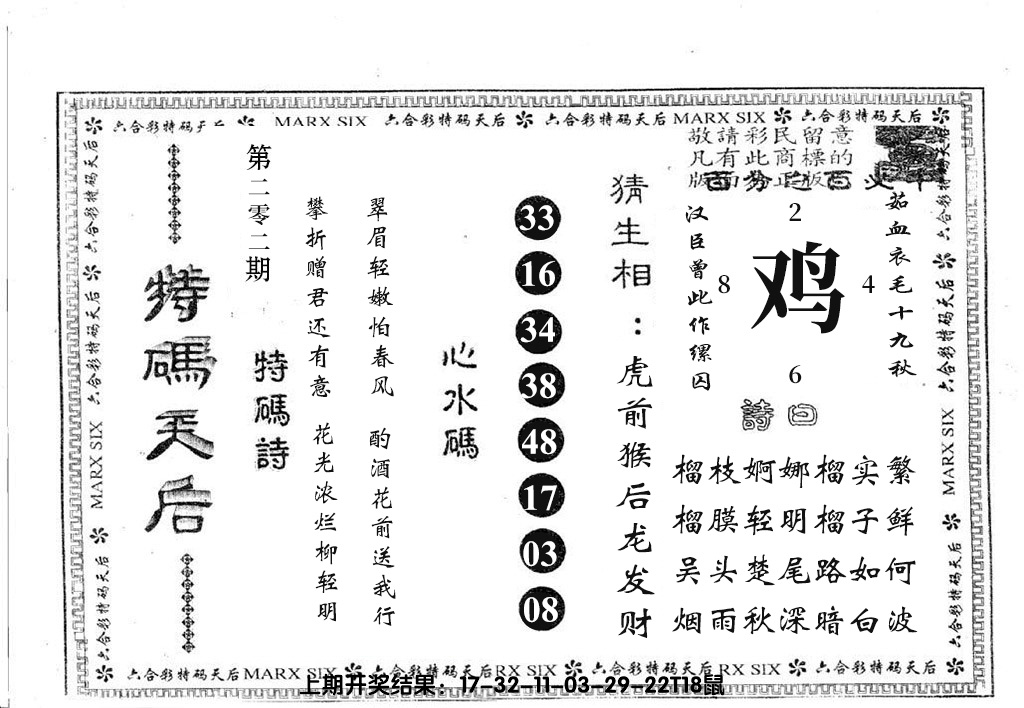 六合彩特码天后 MARX SIX 六合彩特码天后 六合彩特码天后 MARX SIX 六合彩特码天后
敬請彩民留意
凡有此商標的
版
茹血衣毛十九秋
汉臣曾此作缧囚
2
8
鸡
4
6
詩曰
榴枝婀娜榴实繁
榴膜轻明榴子鲜
吴头楚尾路如何
烟雨秋深暗白波
猜生相：虎前猴后龙发财
33
16
34
38
48
17
03
08
心水碼
翠眉轻嫩怕春风 酌酒花前送我行
攀折赠君还有意 花光浓烂柳轻明
特碼詩
第二零二期
特碼天后
六合彩特码天后
六合彩特码天后
MARX SIX
六合彩特码天后
六合彩特码天后
六合彩特码天后
MARX SIX
六合彩特码天后
六合彩特码天后 MARX SIX 六合彩特码天后 RX SIX 六合彩特码天后 RX SIX 六合彩特码天后
上期开奖结果：17-32-11-03-29-22T18鼠